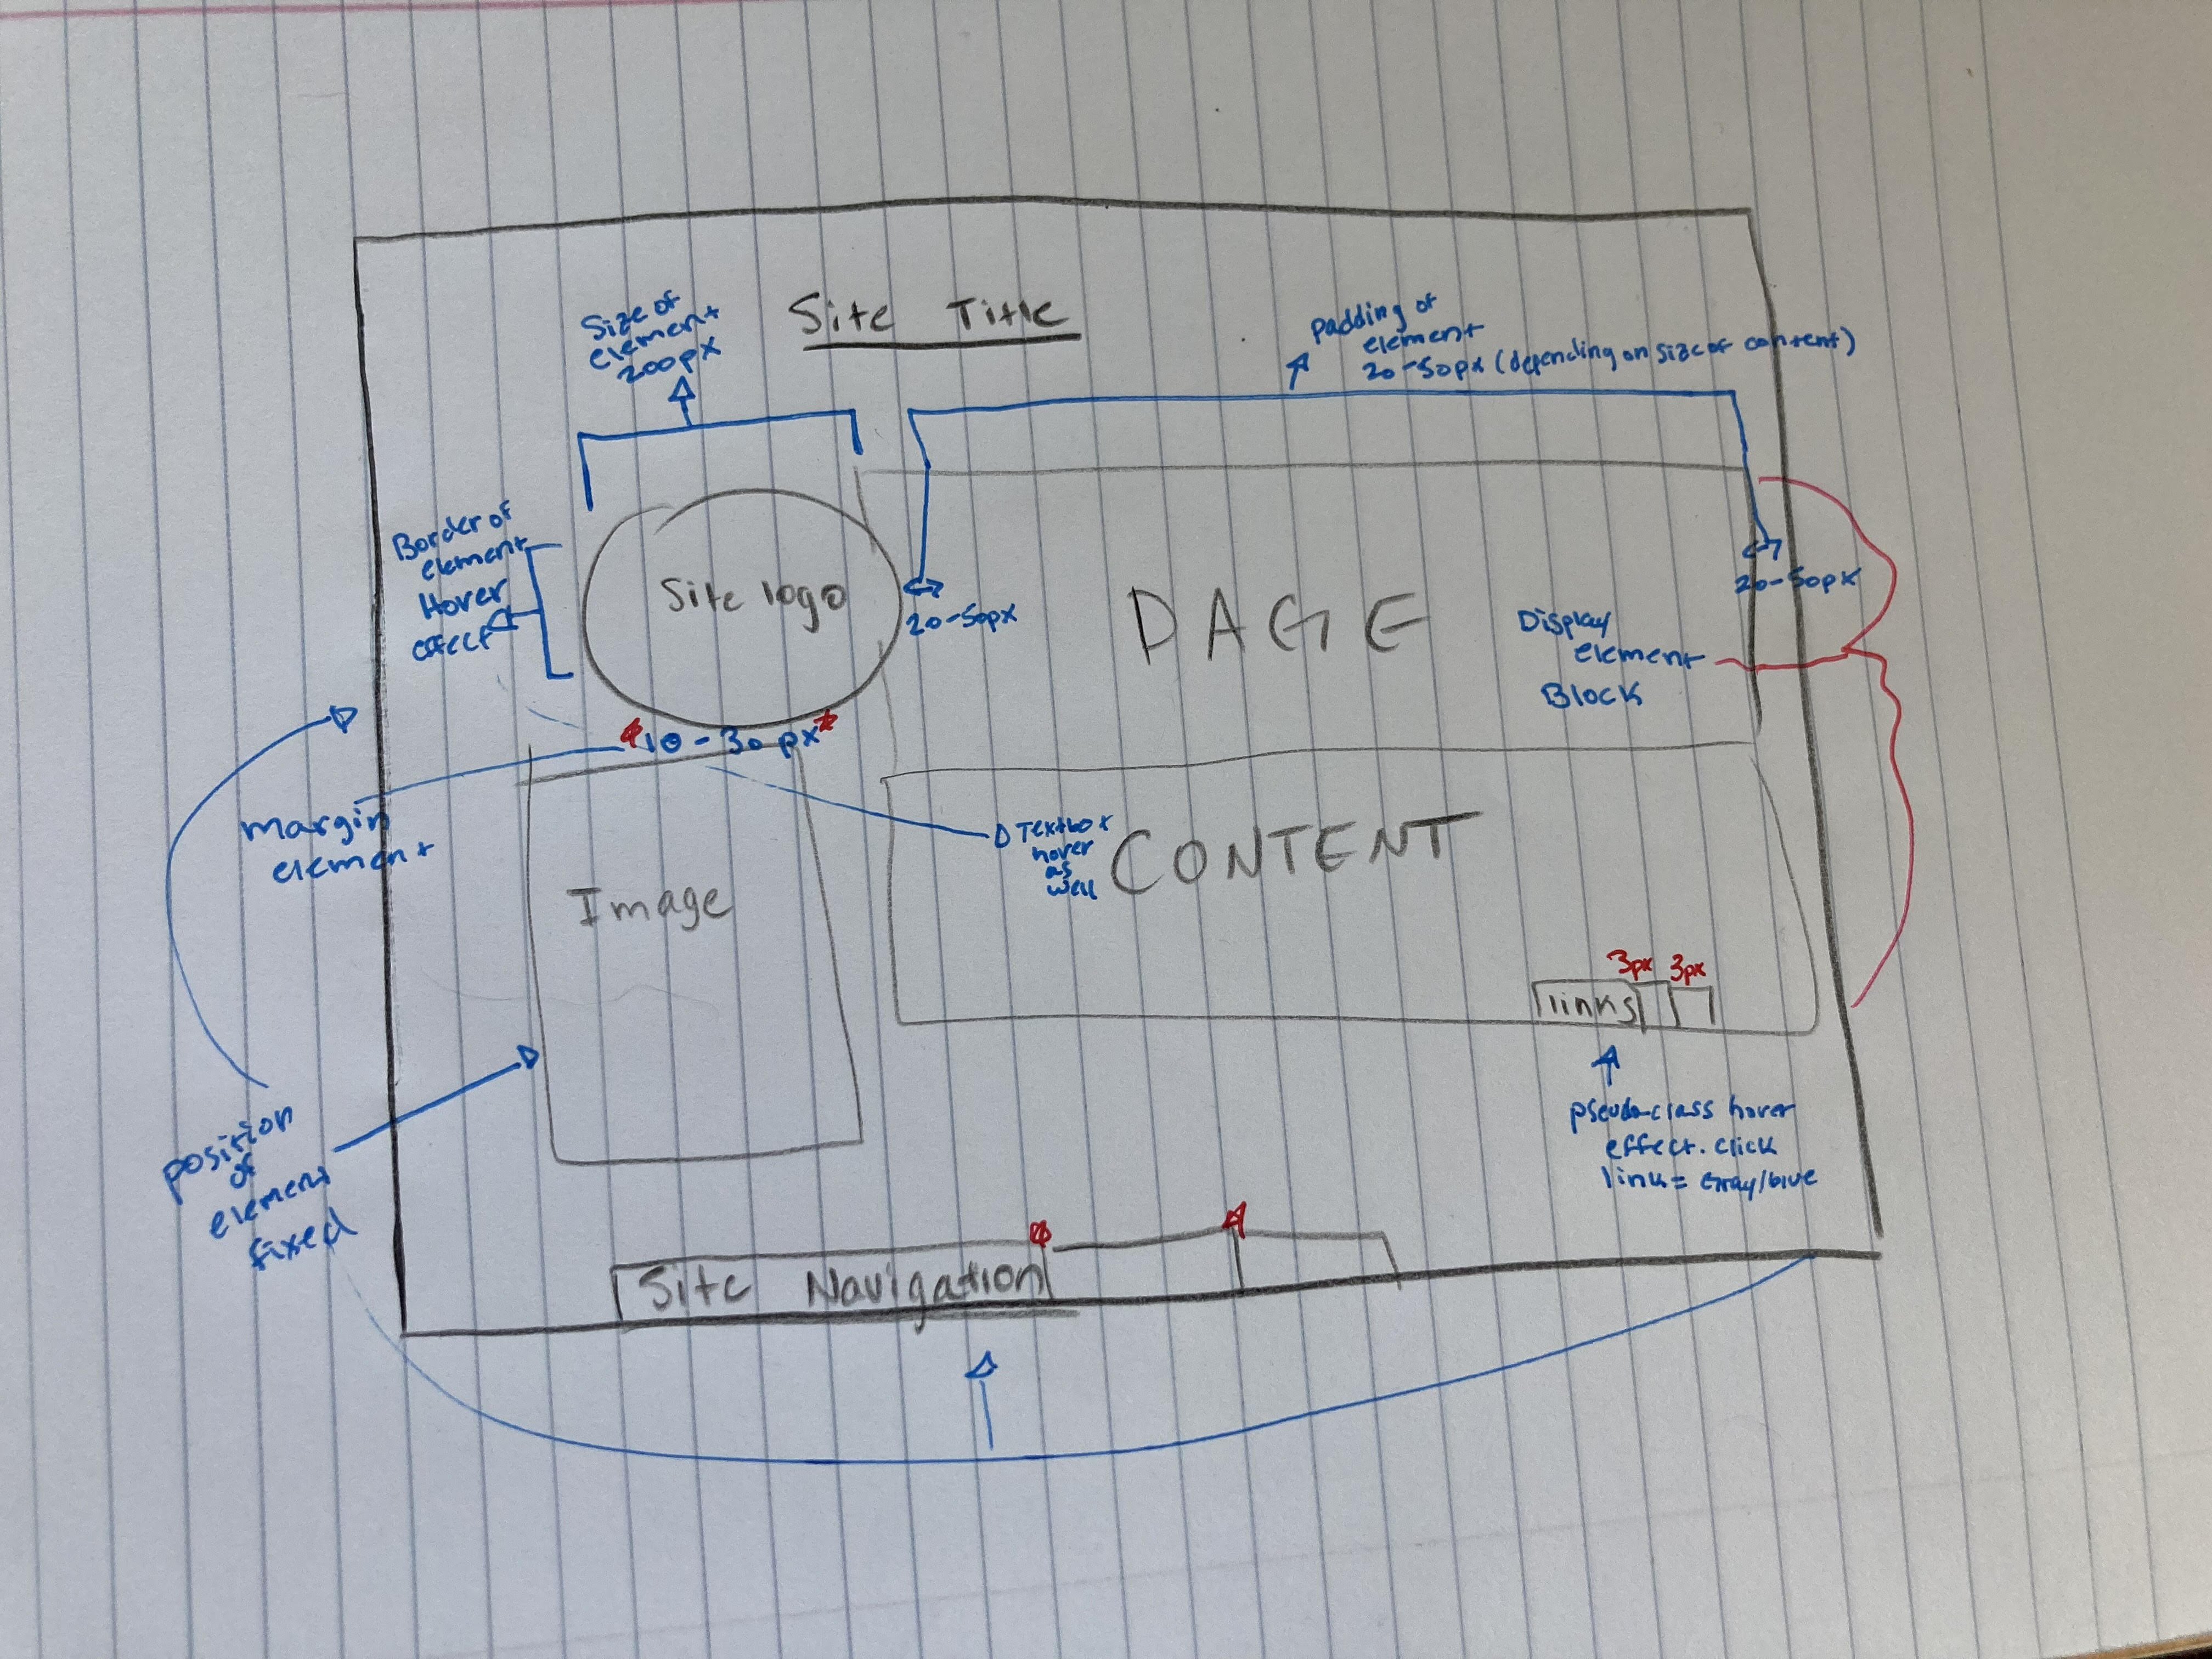 Site Title
Size of
element
200px
padding of
element
20-50px (depending on size of content)
Border of
element
Hover
effect
Site logo
20-50px
PAGE
20-50px
Display
element
Block
10-30px
margin
element
Textbox
hover
as
well
CONTENT
Image
3px 3px
links
pseudo-class hover
effect. click
link = Gray/blue
position
of
element
fixed
Site Navigation